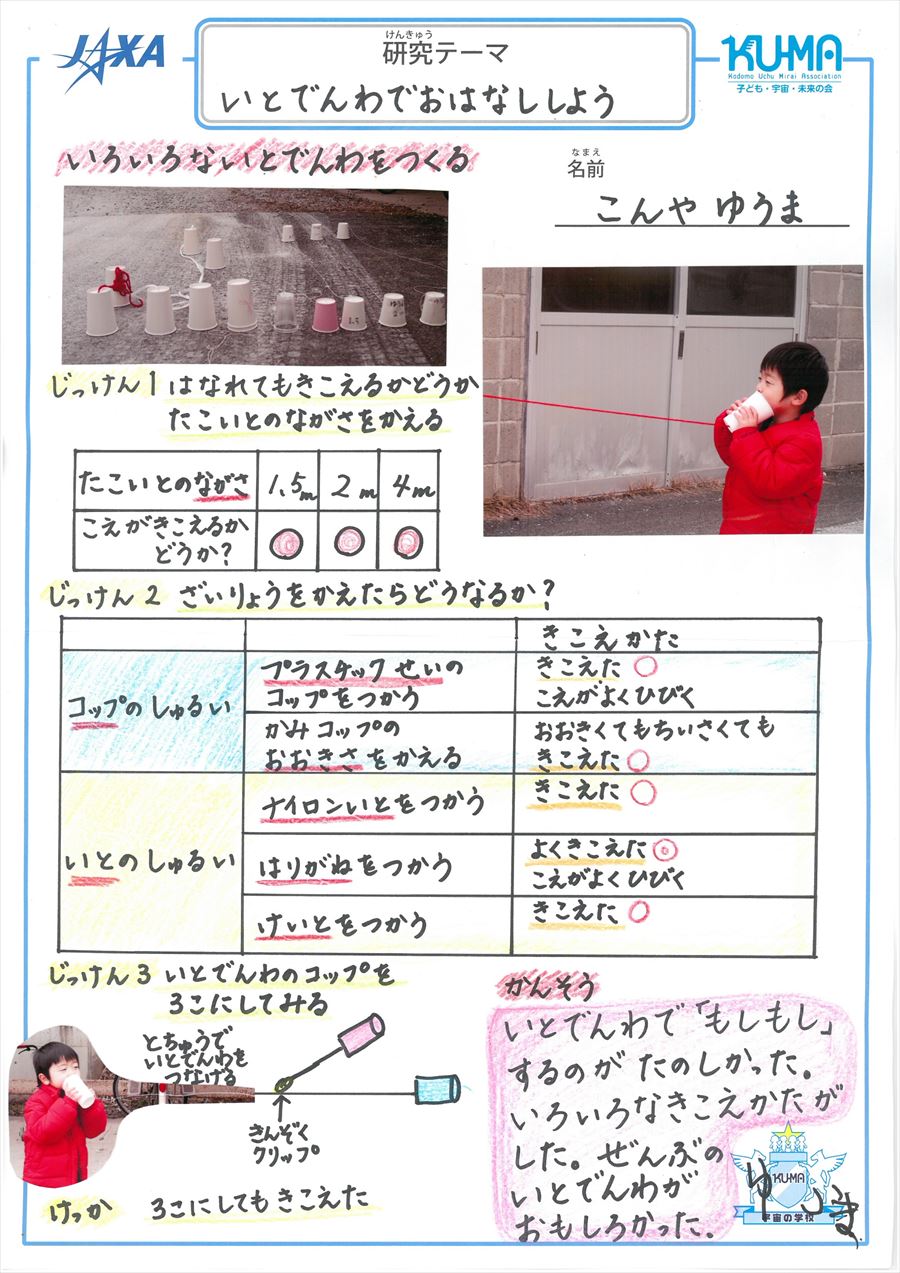 JAXA
けんきゅう
研究テーマ
いとでんわでおはなししよう
KU-MA
Kodomo Uchu Mirai Association
子ども・宇宙・未来の会
いろいろないとでんわをつくる
なまえ
名前
こんや ゆうま
じっけん1 はなれてもきこえるかどうか
たこいとのながさをかえる
たこいとのながさ 1.5m 2m 4m
こえがきこえるか
どうか? ◎ ◎ ◎
じっけん2 ざいりょうをかえたらどうなるか?
きこえかた
コップのしゅるい
プラスチックせいの
コップをつかう
きこえた ○
こえがよくひびく
かみコップの
おおきさをかえる
おおきくてもちいさくても
きこえた ○
いとのしゅるい
ナイロンいとをつかう
きこえた ○
はりがねをつかう
よくきこえた ◎
こえがよくひびく
けいとをつかう
きこえた ○
じっけん3 いとでんわのコップを
3こにしてみる
とちゅうで
いとでんわを
つなげる
きんぞく
クリップ
けっか 3こにしてもきこえた
かんそう
いとでんわで「もしもし」
するのが たのしかった。
いろいろなきこえかたが
した。ぜんぶの
いとでんわが
おもしろかった。
KU-MA
宇宙の学校
ゆうま